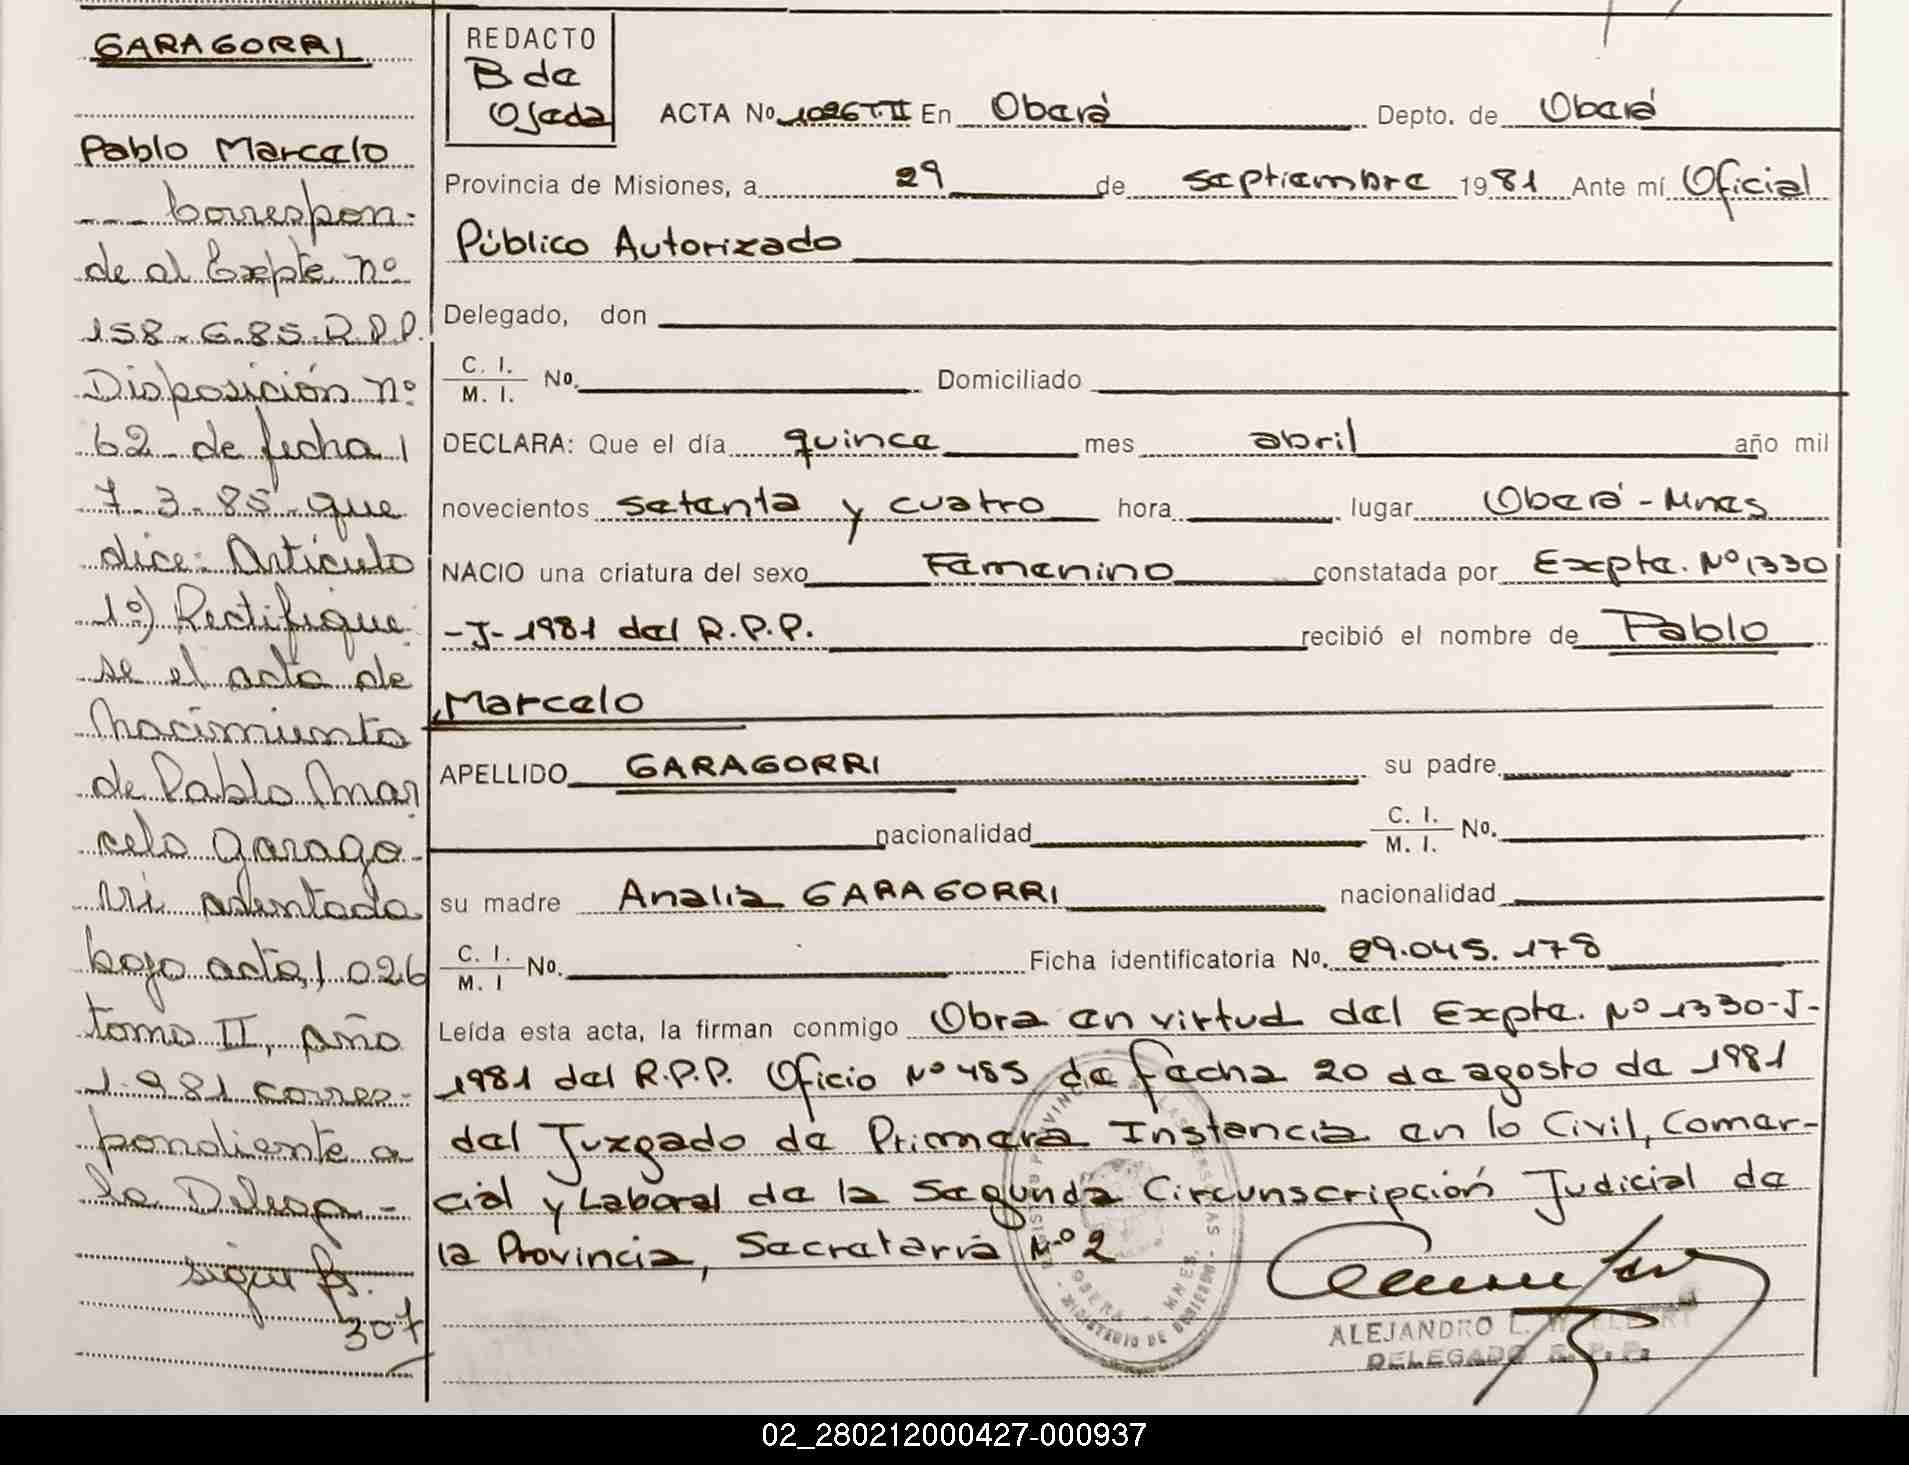 GARAGORRI
Pablo Marcelo
--- Correspon-
de al Expte nº
158-G-85-R.P.P.
Disposición nº
62 de fecha
7-3-85 que
dice: Artículo
1º) Rectifique
se el acta de
Nacimiento
de Pablo Mar
celo Garago-
rri asentada
bajo acta 1026
tomo II, año
1.981 corres-
pondiente a
la Delega-
sigue fs.
307
REDACTO
B de
Ojeda
ACTA No. 1026 T.II En Oberá Depto. de Oberá
Provincia de Misiones, a 29 de septiembre 1981 Ante mí Oficial
Público Autorizado
Delegado, don
C. I.
M. I. No. Domiciliado
DECLARA: Que el día quince mes abril año mil
novecientos setenta y cuatro hora lugar Oberá-Mnes
NACIO una criatura del sexo Femenino constatada por Expte. Nº 1330
-J-1981 del R.P.P. recibió el nombre de Pablo
Marcelo
APELLIDO GARAGORRI su padre
nacionalidad C. I.
M. I. No.
su madre Analia GARAGORRI nacionalidad
C. I.
M. I No. Ficha identificatoria No. 29.045.178
Leída esta acta, la firman conmigo Obra en virtud del Expte. Nº 1330-J-
1981 del R.P.P. Oficio Nº 485 de fecha 20 de agosto de 1981
del Juzgado de Primera Instancia en lo Civil, Comer-
cial y Laboral de la Segunda Circunscripción Judicial de
la Provincia, Secretaría Nº 2
ALEJANDRO L.
DELEGADO R. P. P.
MINISTERIO DE GOBIERNO
OBERÁ - MNES.
02_280212000427-000937